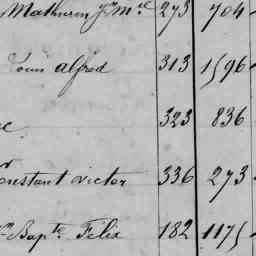 Mathurin Jn Mie 273 704
Louis Alfred 313 1596
323 836
Constant Victor 336 273
Bapte Félix 182 1175